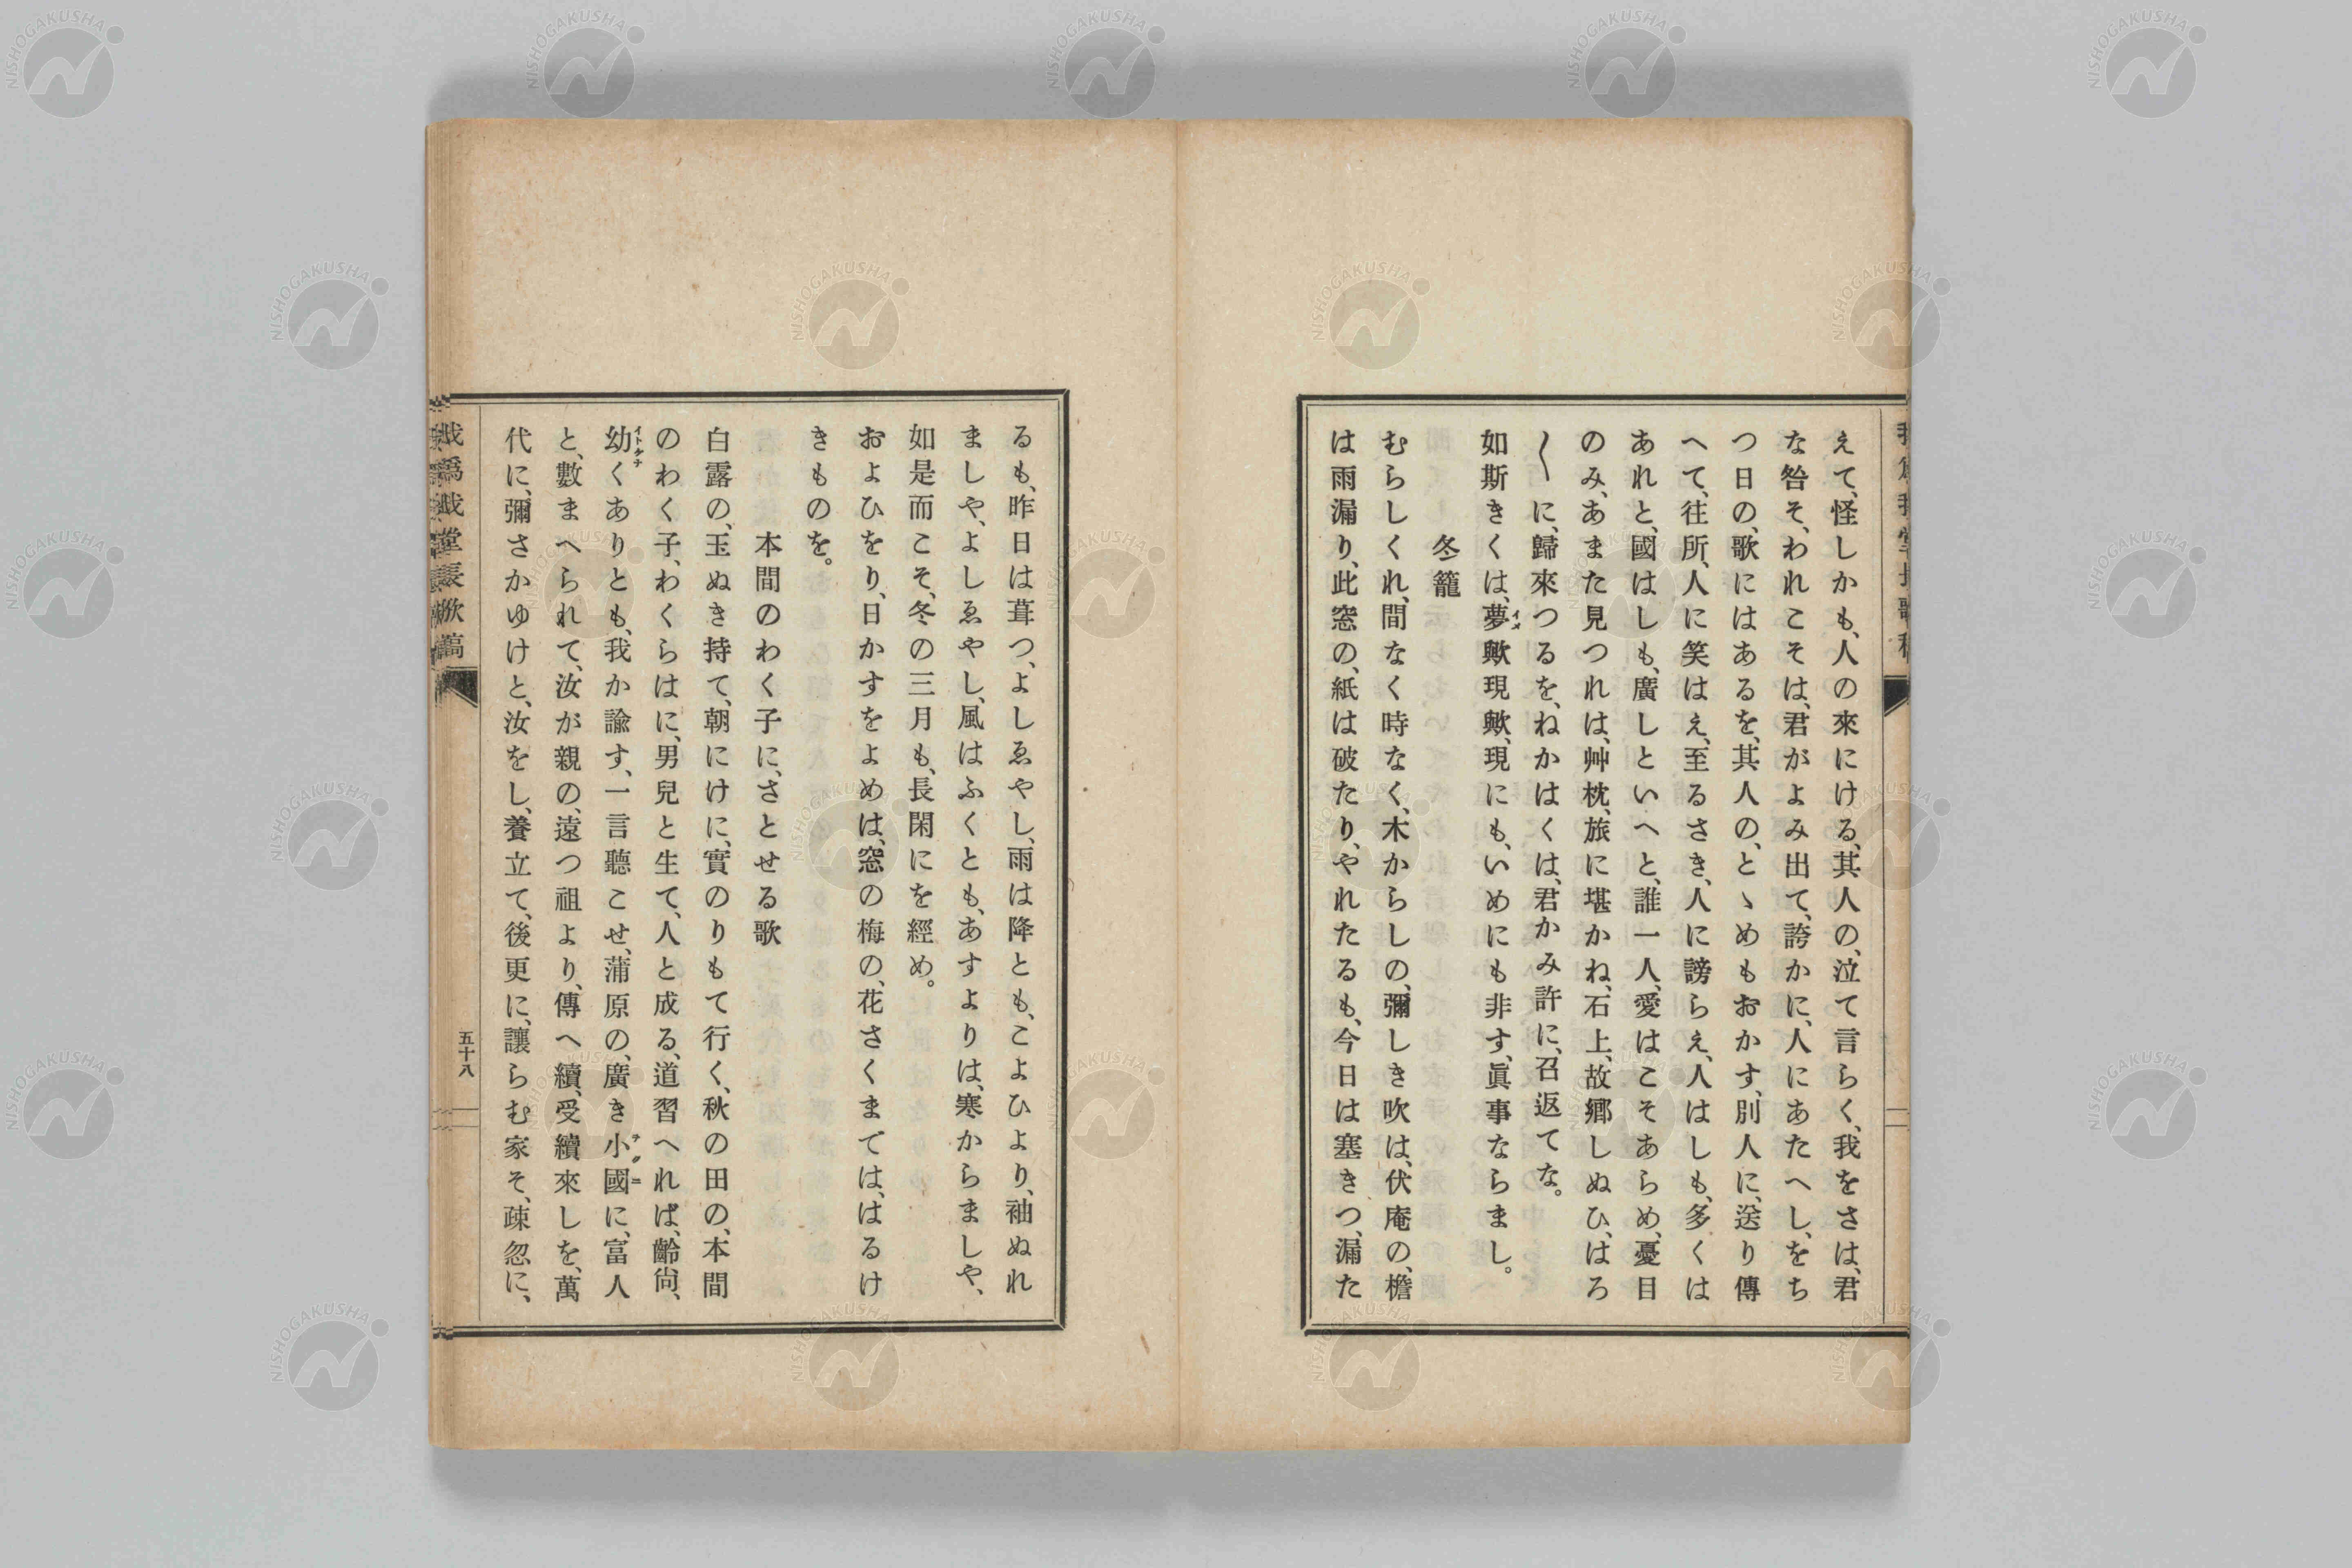 えて、怪しかも、人の來にける、其人の、泣て言らく、我をさは、君
な咎そ、われこそは、君がよみ出て、誇かに、人にあたへし、をち
つ日の、歌にはあるを、其人の、とゝめもおかす、別人に、送り傳
へて、往所、人に笑はえ、至るさき、人に謗らえ、人はしも、多くは
あれと、國はしも、廣しといへと、誰一人、愛はこそあらめ、憂目
のみ、あまた見つれは、艸枕、旅に堪かね、石上、故郷しぬひ、はろ
〱に、歸來つるを、ねかはくは、君かみ許に、召返てな。
如斯きくは、夢歟現歟、現にも、いめにも非す、眞事ならまし。
イメ
冬籠
むらしくれ、間なく時なく、木からしの、彌しき吹は、伏庵の、檐
は雨漏り、此窓の、紙は破たり、やれたるも、今日は塞きつ、漏た
るも、昨日は葺つ、よしゑやし、雨は降とも、こよひより、袖ぬれ
ましや、よしゑやし、風はふくとも、あすよりは、寒からましや、
如是而こそ、冬の三月も、長閑にを經め。
およひをり、日かすをよめは、窓の梅の、花さくまでは、はるけ
きものを。
本間のわく子に、さとせる歌
白露の、玉ぬき持て、朝にけに、實のりもて行く、秋の田の、本間
のわく子、わくらはに、男兒と生て、人と成る、道習へれば、齡尙、
幼くありとも、我か諭す、一言聽こせ、蒲原の、廣き小國に、富人
イトケナ
ヲグニ
と、數まへられて、汝が親の、遠つ祖より、傳へ續、受續來しを、萬
代に、彌さかゆけと、汝をし、養立て、後更に、讓らむ家そ、疎忽に、
五十八